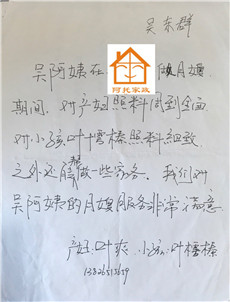 吴东群
阿托家政
吴阿姨在 做月嫂
期间,对产妇照料周到全面
对小孩叶 榛照料细致
之外还 做一些家务。我们对
吴阿姨的月嫂服务非常满意
产妇:叶爽 小孩:叶 榛